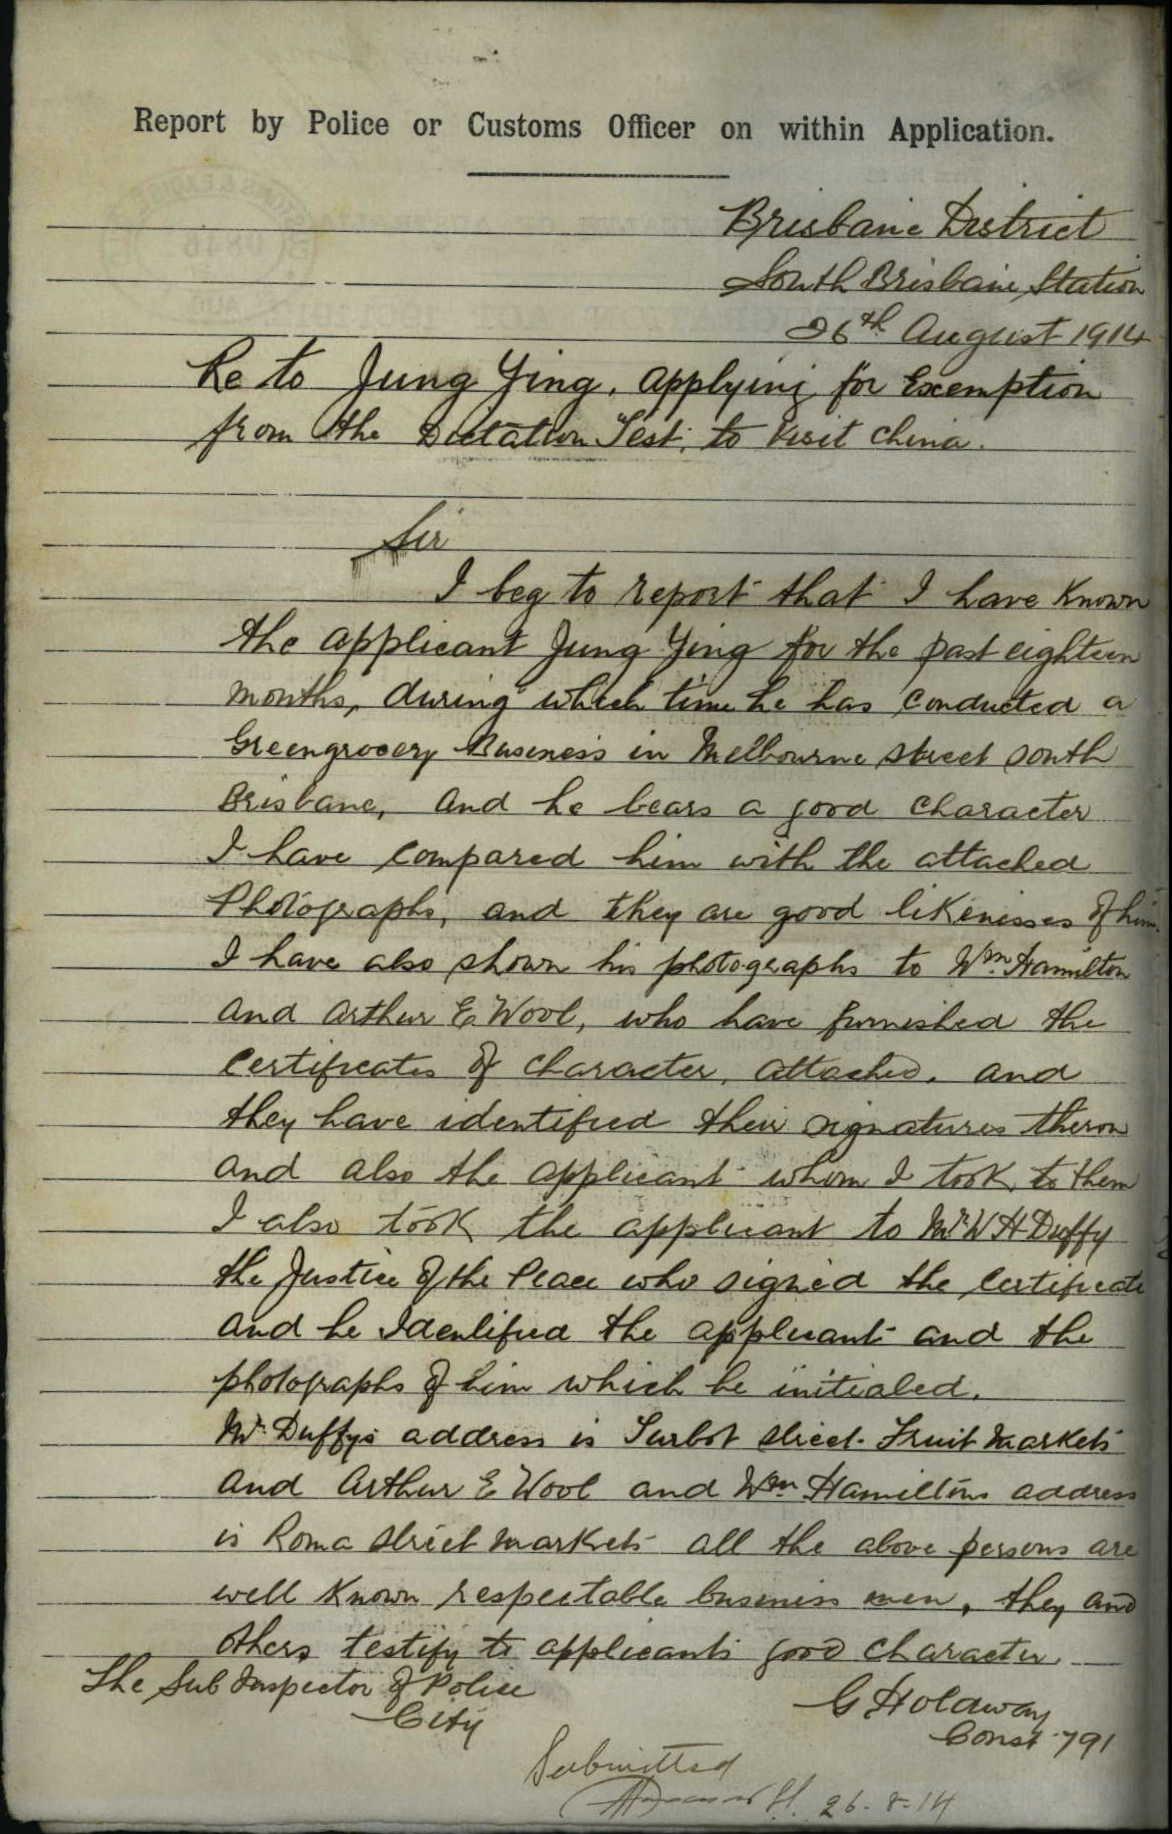 Report by Police or Customs Officer on within Application.
Brisbane District
South Brisbane Station
26th August 1914
Re to Jung Ying, applying for Exemption
from the Dictation Test, to Visit China.
Sir
I beg to report that I have Known
the applicant Jung Ying for the past eighteen
months, during which time he has conducted a
Greengrocery Business in Melbourne Street South
Brisbane, and he bears a good character
I have compared him with the attached
Photographs, and they are good likenesses of him.
I have also shown his photographs to Wm Hamilton
and Arthur E Wool, who have furnished the
certificates of character, attached, and
they have identified their signatures theron
and also the applicant whom I took to them
I also took the applicant to Mr W H Duffy
the Justice of the Peace who signed the certificate
and he Identified the applicant and the
photographs of him which he initialed.
Mr Duffys address is Turbot Street Fruit Markets
and Arthur E Wool and Wm Hamiltons address
is Roma Street Markets all the above persons are
well Known respectable business men, they and
others testify to applicants good character.
The Sub Inspector of Police
City
G Holdway
Const 791
Submitted
26.8.14